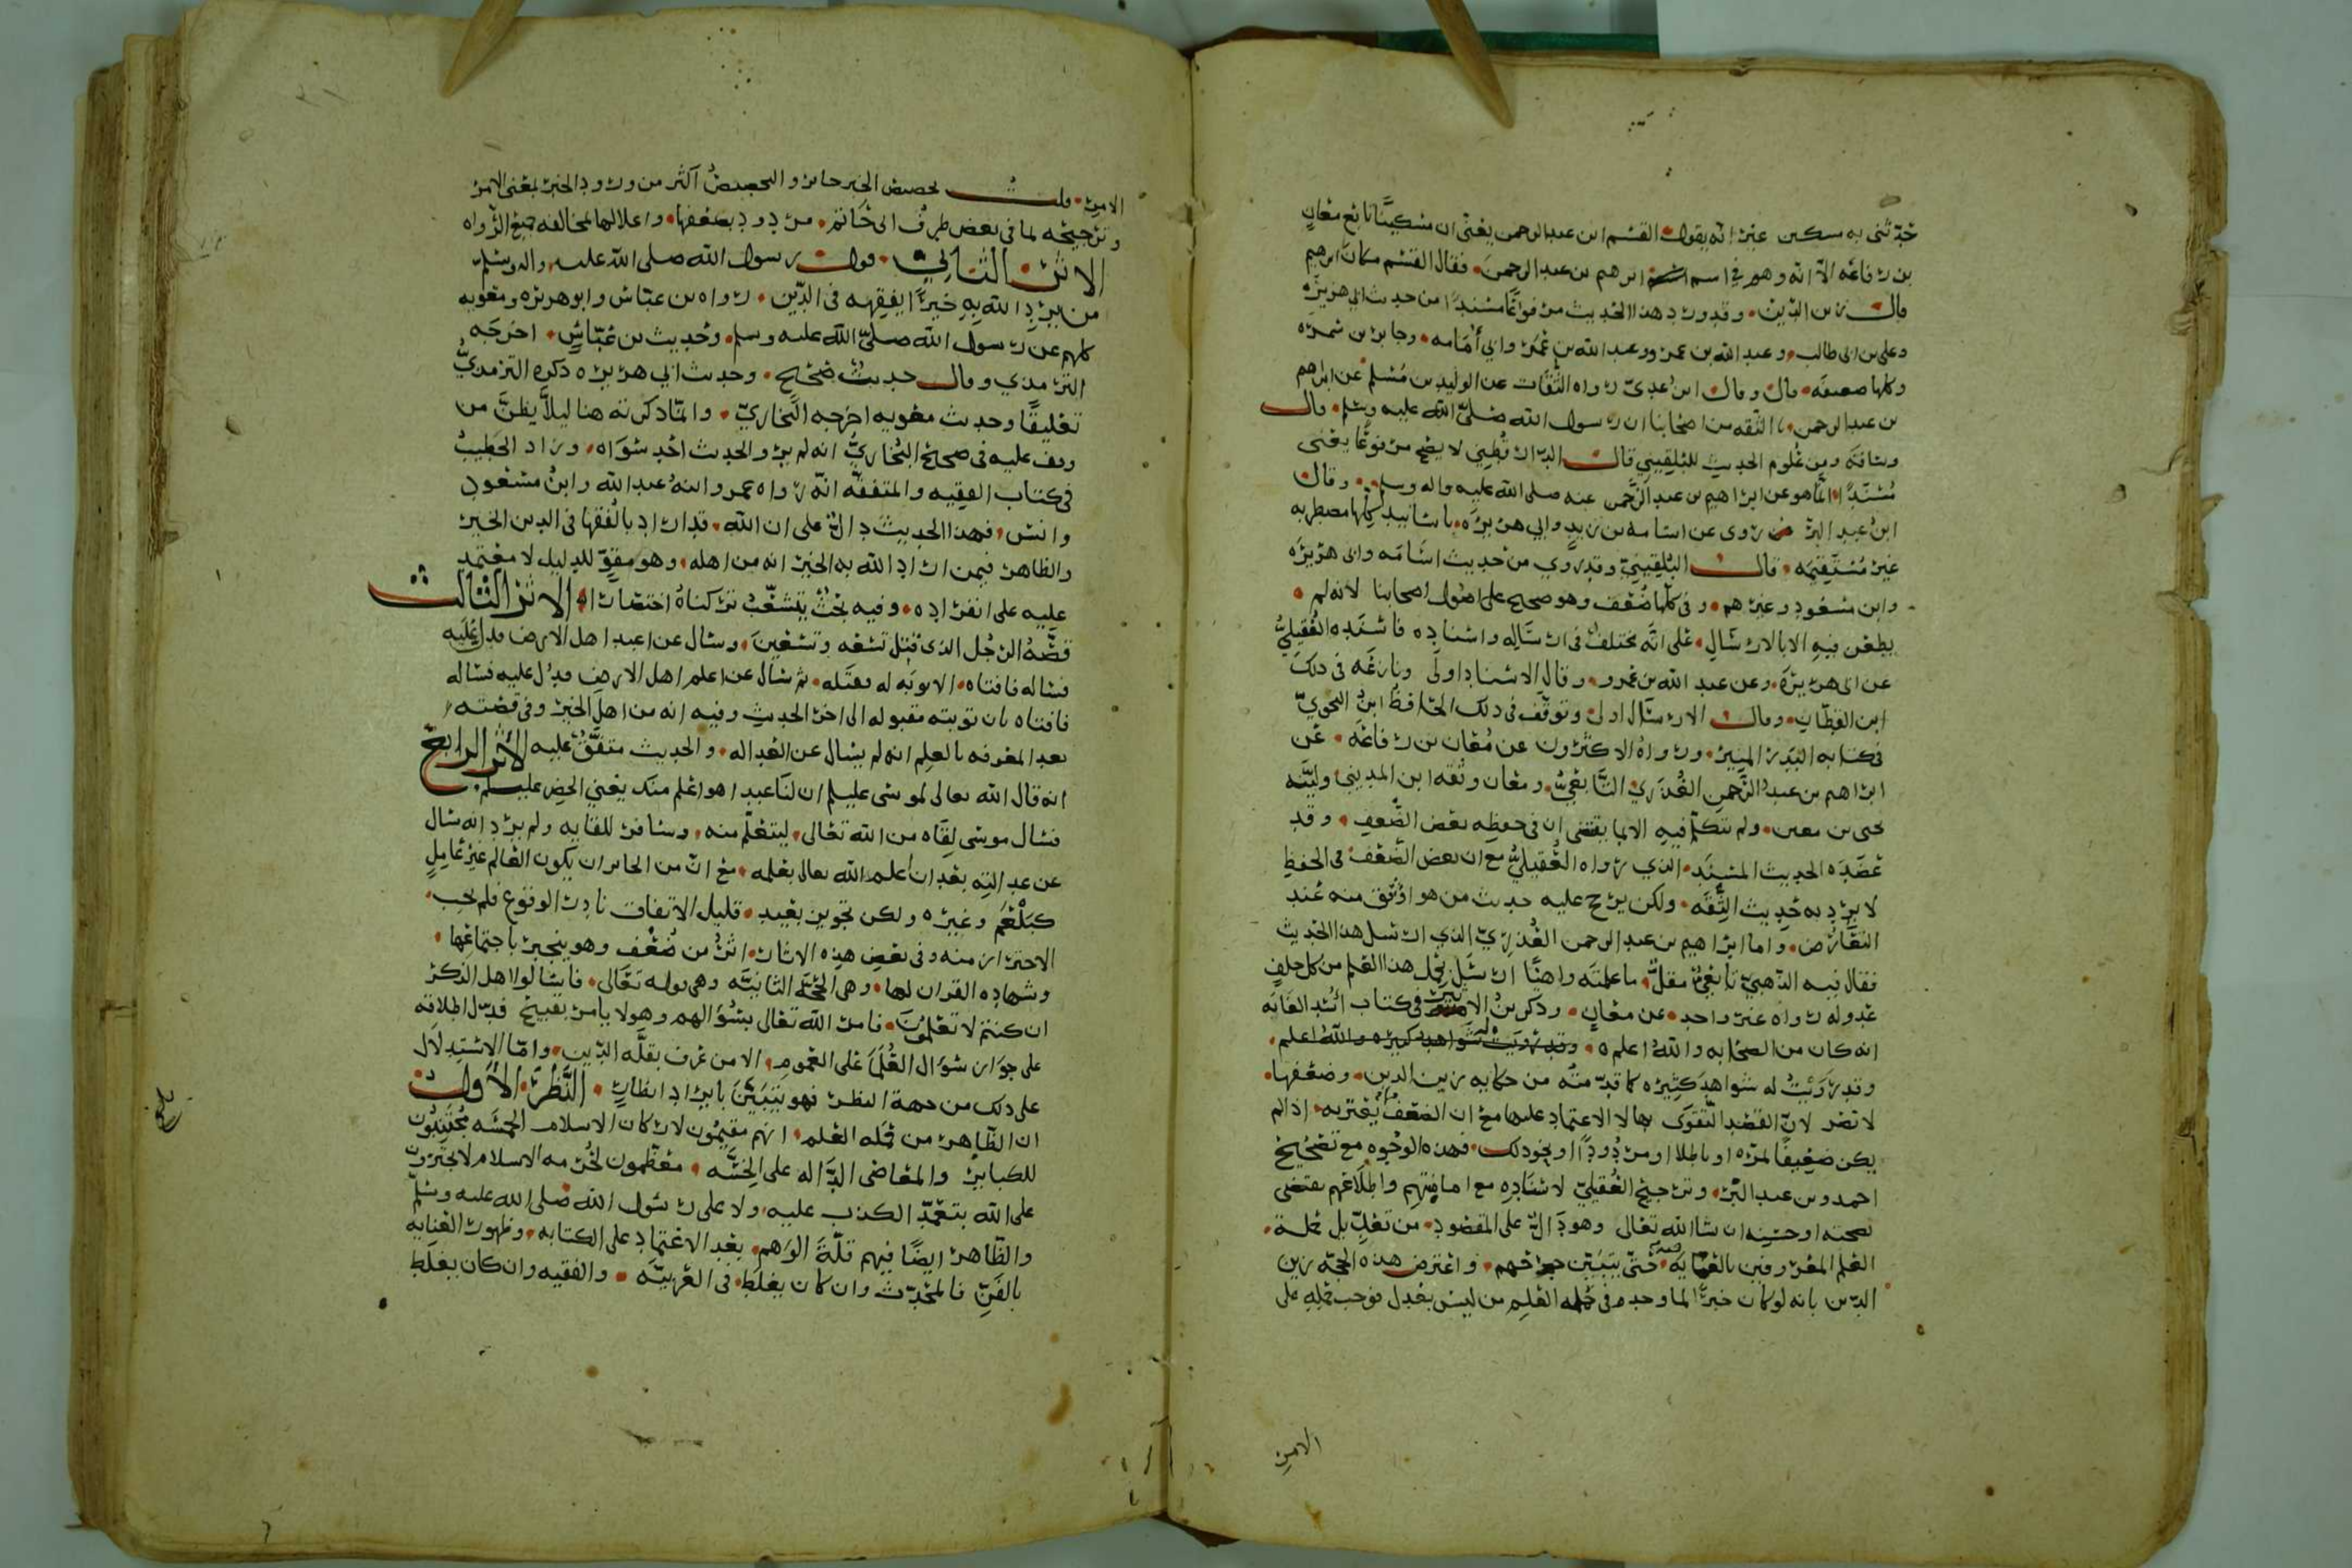 حدثني به مسكين غير انه يقول القسم ابن عبد الرحمن يعني ان مسكينا تابع معان
بن رفاعه الا انه وهم في اسم ابرهيم بن عبد الرحمن فقال القسم مكان ابرهيم
قال زين الدين وقد ورد هذا الحديث مرفوعا مسندا من حديث ابي هريره
وعلي بن ابي طالب وعبد الله بن عمرو وعبد الله بن عمر وابي امامه وجابر بن سمره
وكلها ضعيفه قال وقال ابن عدي رواه الثقات عن الوليد بن مسلم عن ابراهيم
بن عبد الرحمن نا الثقه من اصحابنا ان رسول الله صلى الله عليه وسلم قال
وساقه ومن علوم الحديث للبلقيني قال الدارقطني لا يصح مرفوعا يعني
مسندا انما هو عن ابراهيم بن عبد الرحمن عنه صلى الله عليه واله وسلم وقال
ابن عبد البر روى عن اسامه بن زيد وابي هريره باسانيد كلها مضطربه
غير مستقيمه قال البلقيني وقد روي من حديث اسامه وابي هريره
وابن مسعود وغيرهم وفي كلها ضعف وهو صحيح على اصول اصحابنا لانه لم
يطعن فيه الا بالارسال على انه مختلف في ارساله واسناده فاسنده العقيلي
عن ابي هريره وعن عبد الله بن عمرو وقال الاسناد اولى ونازعه في ذلك
ابن القطان وقال الارسال اولى وتوقف في ذلك الحافظ ابن النحوي
في كتابه البدر المنير ورواه الاكثرون عن معان بن رفاعه عن
ابراهيم بن عبد الرحمن العذري التابعي ومعان وثقه ابن المديني ولينه
يحيى بن معين ولم يتكلم فيه الا بما يقتضي ان في حفظه بعض الضعف وقد
عضده الحديث المسند الذي رواه العقيلي مع ان بعض الضعف في الحفظ
لا يرد به حديث الثقه ولكن يرجح عليه حديث من هو اوثق منه عند
التعارض واما ابراهيم بن عبد الرحمن العذري الذي ارسل هذا الحديث
فقال فيه الذهبي تابعي مقل ما علمته واهيا ارسل يحمل هذا العلم من كل خلف
عدوله رواه غير واحد عن معان وذكر بن الاثير في كتاب اسد الغابه
انه كان من الصحابه والله اعلم وقد رويت له شواهد كثيره والله اعلم
وقد رويت له شواهد كثيره كما قدمته من حكايه زين الدين وضعفها
لا تضر لان القصد التقوى بها لا الاعتماد عليها مع ان الضعف يعتبر به اذا لم
يكن ضعيفا لمره او باطلا او مردودا او نحو ذلك فهذه الوجوه مع تصحيح
احمد وبن عبد البر وترجيح العقيلي لاسناده مع امامتهم واطلاعهم يقتضي
بصحته او حسنه ان شا الله تعالى وهو دال على المقصود من تعديل حملة
العلم المعروفين بالعنايه فيه حتى يتبين جرحهم واعترض هذه الحجه زين
الدين بانه لو كان خبرا لما وجد في حمله العلم من ليس بعدل فوجب حمله على
الامر
الامر قلت تخصيص الخبر جائز والتخصيص اكثر من ورود الخبر بمعنى الامر
وترجيحه لما في بعض طرق ابي حاتم مردود بضعفها واعلالها لمخالفه جميع الرواه
الاثر الثاني قول رسول الله صلى الله عليه واله وسلم
من يرد الله به خيرا يفقهه في الدين رواه بن عباس وابو هريره ومعويه
كلهم عن رسول الله صلى الله عليه وسلم وحديث بن عباس اخرجه
الترمذي وقال حديث صحيح وحديث ابي هريره ذكره الترمذي
تعليقا وحديث معويه اخرجه البخاري وانما ذكرته هنا ليلا يظن من
وقف عليه في صحيح البخاري انه لم يرو الحديث احد سواه وزاد الخطيب
في كتاب الفقيه والمتفقه انه رواه عمر وابنه عبد الله وابن مسعود
وانس فهذا الحديث دال على ان الله قد اراد بالفقها في الدين الخير
والظاهر فيمن اراد الله به الخير انه من اهله وهو مقو للدليل لا معتمد
عليه على انفراده وفيه بحث يتشعب تركناه اختصارا الاثر الثالث
قصه الرجل الذي قتل تسعه وتسعين وسال عن اعبد اهل الارض فدل عليه
فساله فافتاه الا توبه له فقتله ثم سال عن اعلم اهل الارض فدل عليه فساله
فافتاه بان توبته مقبوله الى اخر الحديث وفيه انه من اهل الخير وفي قصته
بعد المعرفه بالعلم انه لم يسال عن العداله والحديث متفق عليه الاثر الرابع
انه قال الله تعالى لموسى عليلم ان لنا عبدا هو اعلم منك يعني الخضر عليلم
فسال موسى لقاه من الله تعالى ليتعلم منه وسافر للقايه ولم يرد انه سال
عن عدالته بعد ان اعلمه الله تعالى بعلمه مع ان من الجائز ان يكون العالم غير عامل
كبلعم وغيره ولكن تجويز بعيد قليل الاتفاق نادر الوقوع فلم يجب
الاحتراز منه وفي بعض هذه الاثار اثر من ضعف وهو ينجبر باجتماعها
وشهاده القران لها وهي الحجه الثانيه وهي قوله تعالى فاسالوا اهل الذكر
ان كنتم لا تعلمون فامر الله تعالى بسؤالهم وهو لا يامر بقبيح فدل اطلاقه
على جواز سؤال العلما على العموم الا من عرف بقله الدين واما الاستدلال
على ذلك من جهة النظر فهو يتبين بايراد انظار النظر الاول
ان الظاهر من حمله العلم انهم مقيمون لاركان الاسلام الخمسه مجتنبون
للكبائر والمعاصي الداله على الخسه معظمون لحرمه الاسلام لا يجترون
على الله بتعمد الكذب عليه ولا على رسول الله صلى الله عليه وسلم
والظاهر ايضا فيهم قلة الوهم بعد الاعتماد على الكتابه وظهور العنايه
بالفن فالمحدث وان كان يغلط في العربيه والفقيه وان كان يغلط